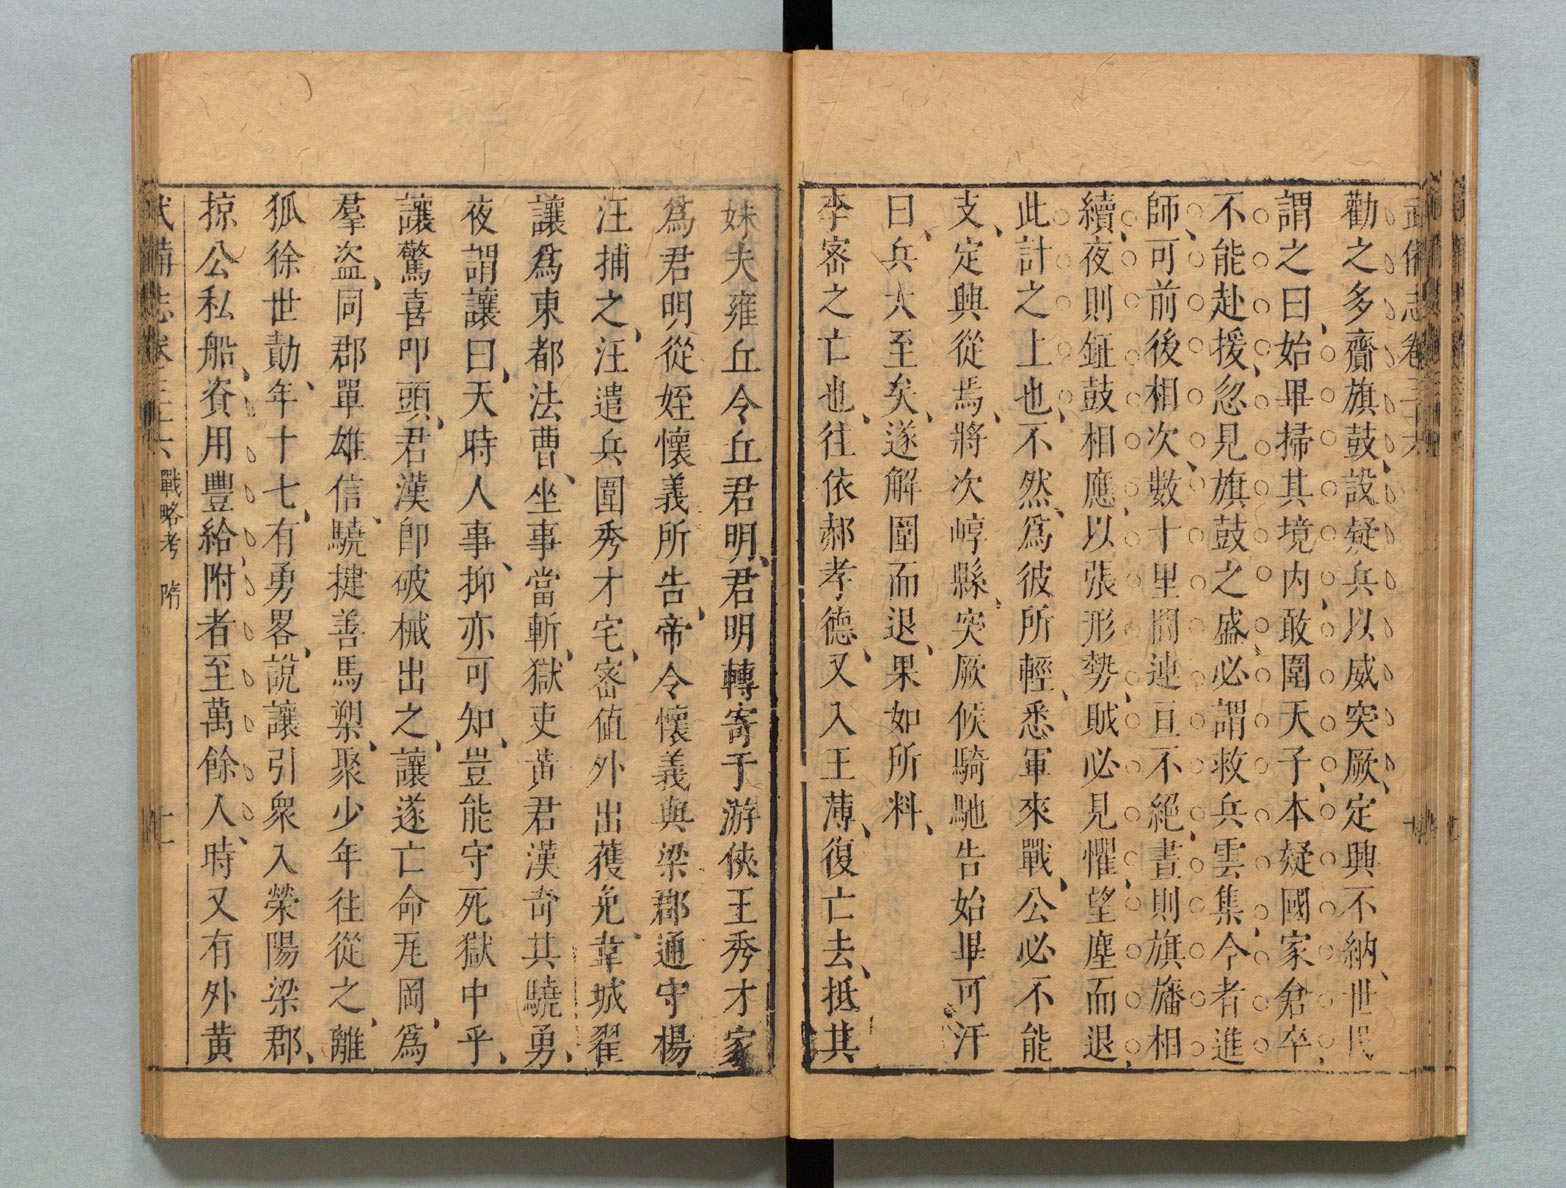 武備志卷三十六
勸之多齎旗鼓設疑兵以威突厥定興不納世民
謂之曰始畢掃其境內敢圍天子本疑國家倉卒
不能赴援忽見旗鼓之盛必謂救兵雲集今者進
師可前後相次數十里間連亘不絕晝則旗旛相
續夜則鉦鼓相應以張形勢賊必見懼望塵而退
此計之上也不然爲彼所輕悉軍來戰公必不能
支定興從焉將次崞縣突厥候騎馳告始畢可汗
曰兵大至矣遂解圍而退果如所料
李密之亡也往依郝孝德又入王薄復亡去抵其
妹夫雍丘令丘君明君明轉寄于游俠王秀才家
爲君明從姪懷義所告帝令懷義與梁郡通守楊
汪捕之汪遣兵圍秀才宅密値外出獲免韋城翟
讓爲東都法曹坐事當斬獄吏黃君漢奇其驍勇
夜謂讓曰天時人事抑亦可知豈能守死獄中乎
讓驚喜叩頭君漢卽破械出之讓遂亡命瓦岡爲
羣盜同郡單雄信驍揵善馬槊聚少年往從之離
狐徐世勣年十七有勇畧說讓引衆入滎陽梁郡
掠公私船資用豐給附者至萬餘人時又有外黄
武備志卷三十六 戰略考 隋 十一